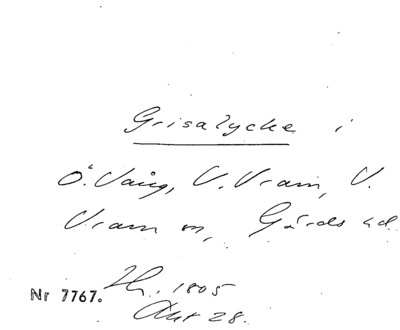 Grisalycke i
Ö. Vång, V. Vram, V.
Vram sn, Gärds hd.
Nr 7767. Lh. 1805
Akt 28.